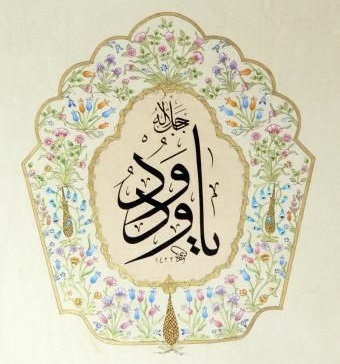 جل جلاله
يا ودود
١٤٢٢